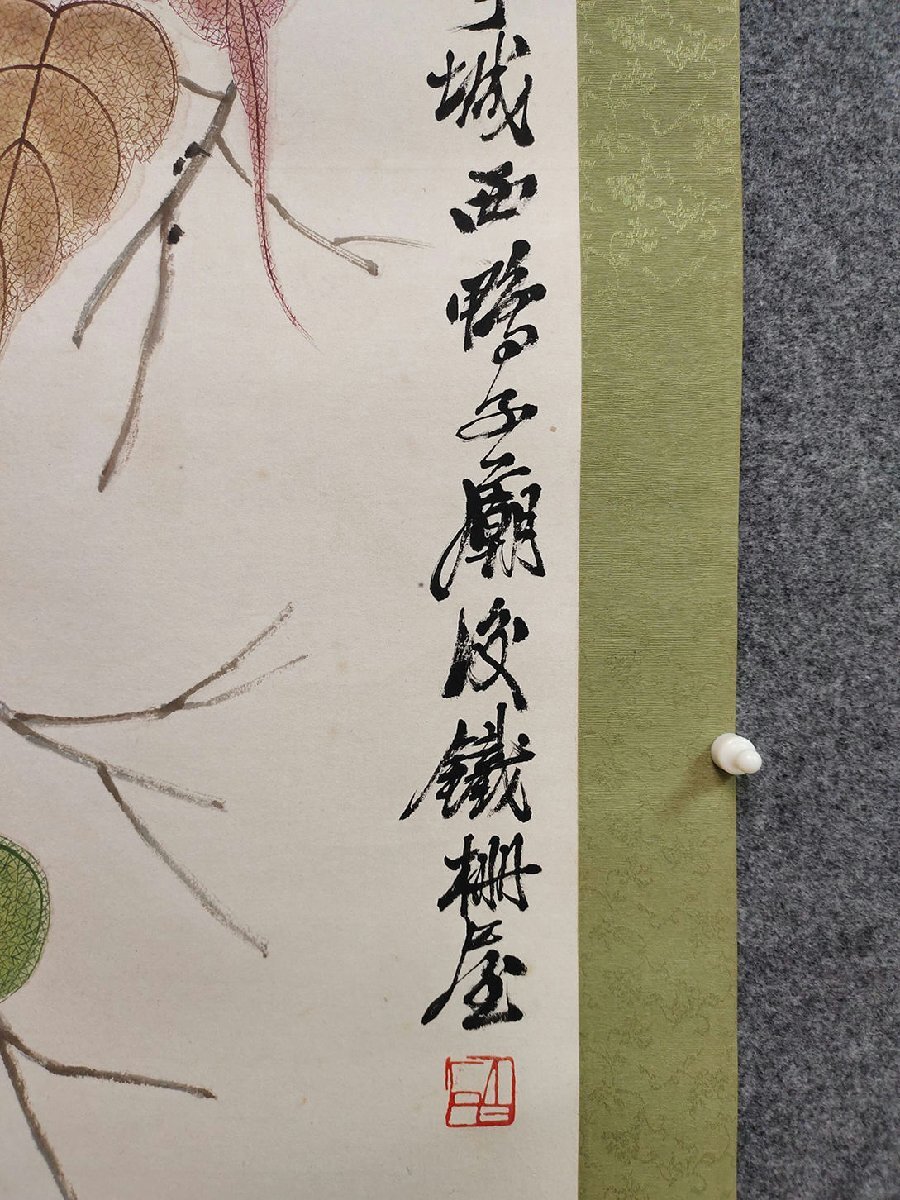 城西鴨子廟後鐵柵屋